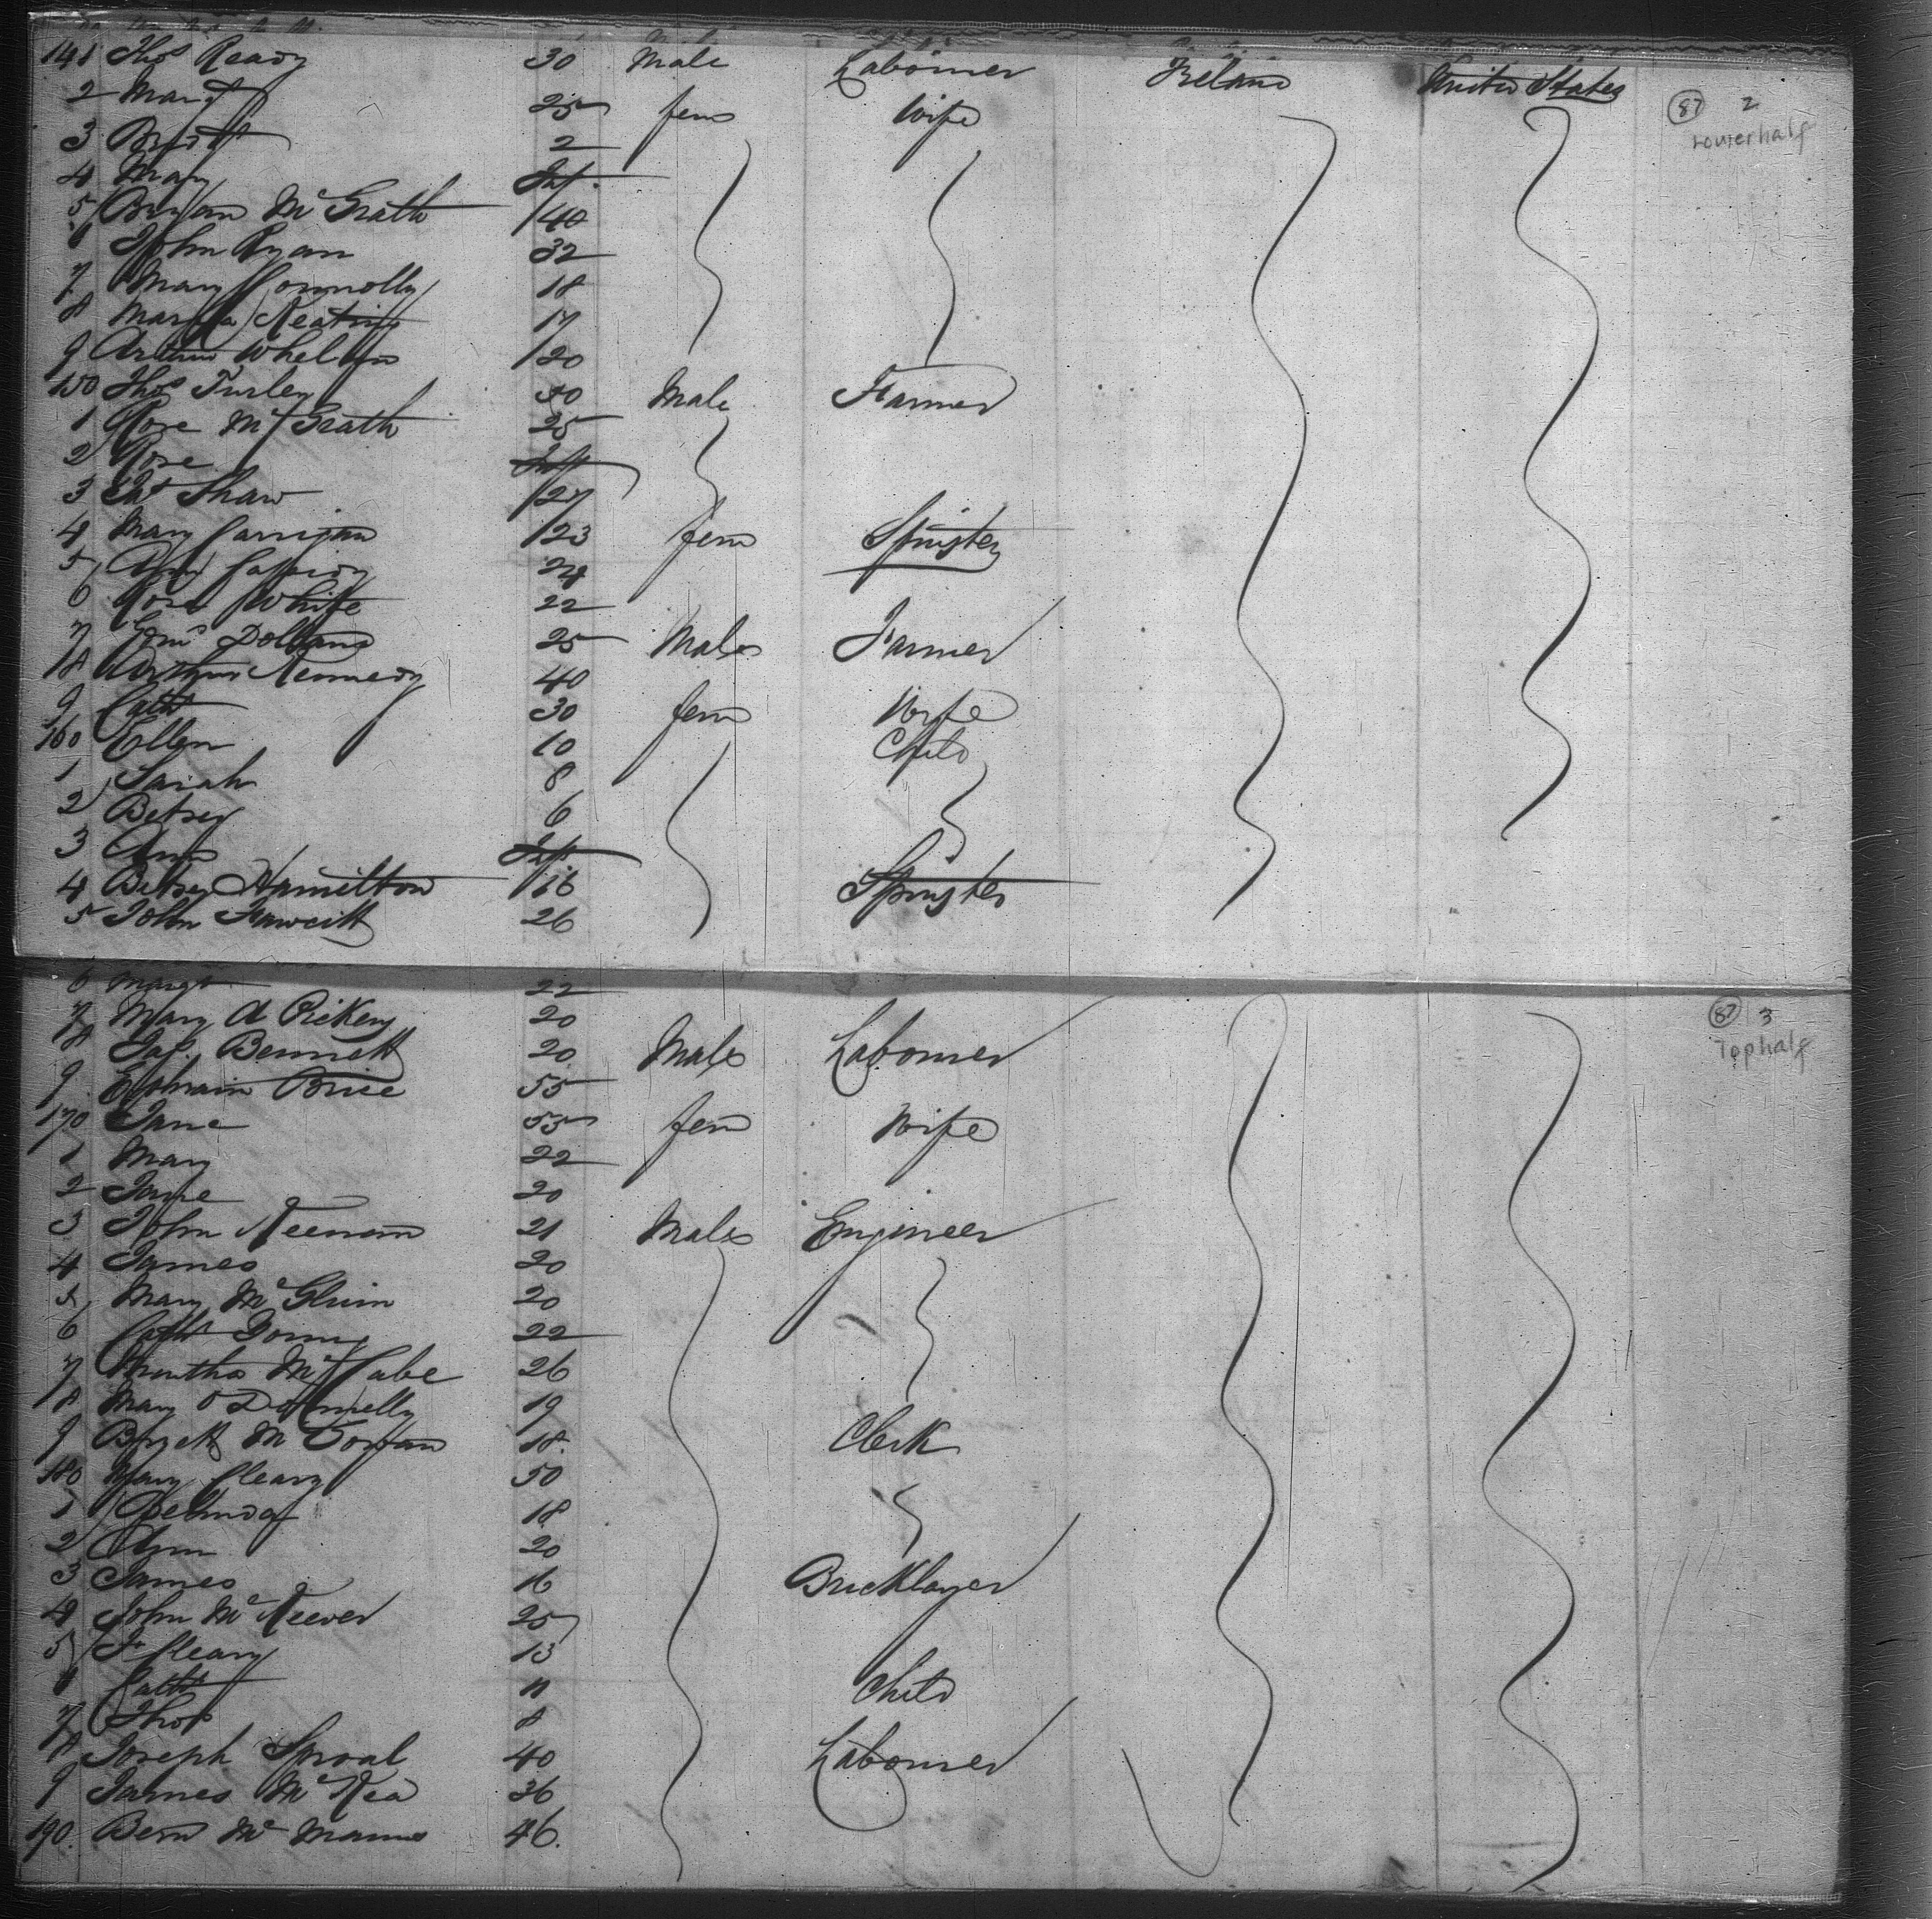 141 Thos Ready 30 Male Labourer Ireland United States
2 Margt 25 fem Wife
3 Bridtt 2
4 Mary Inf.
5 Bryan McGrath 40
6 John Ryan 32
7 Mary Connolly 18
8 Keating 17
9 Arthur Whelan 20
150 Thos Turley 30 Male Farmer
1 Rose McGrath 25
2 Rose Inft
3 Pat Shaw 27
4 Mary Carrigan 23 fem Spinster
5 Ann Cassidy 24
6 Rose White 22
7 25 Male Farmer
8 Arthur Kennedy 40
9 Cathe 30 fem Wife
160 Ellen 10 Child
1 Sarah 8
2 Betsey 6
3 Ann Inft
4 Betsey Hamilton 16 Spinster
5 John Fawcitt 26
87 2
Lower half
6 Margt 22
7 Mary A Rikey 20
8 Jas. Bennett 20 Male Labourer
9 Ephraim Brice 55
170 Jane 55 fem Wife
1 Mary 22
2 Jane 20
3 John Keenan 21 Male Engineer
4 James 20
5 Mary McGlinn 20
6 Cathe 22
7 McCabe 26
8 Mary O Donnelly 19
9 18. Clerk
180 Mary Cleary 50
1 Belinda 18
2 Ann 20
3 James 16 Bricklayer
4 John McKeever 25
5 Cleary 13
6 Cathe 11 Child
7 Thos 8
8 Joseph Sproal 40 Labourer
9 James McKea 36
190. Bern McManus 46.
87 3
Top half